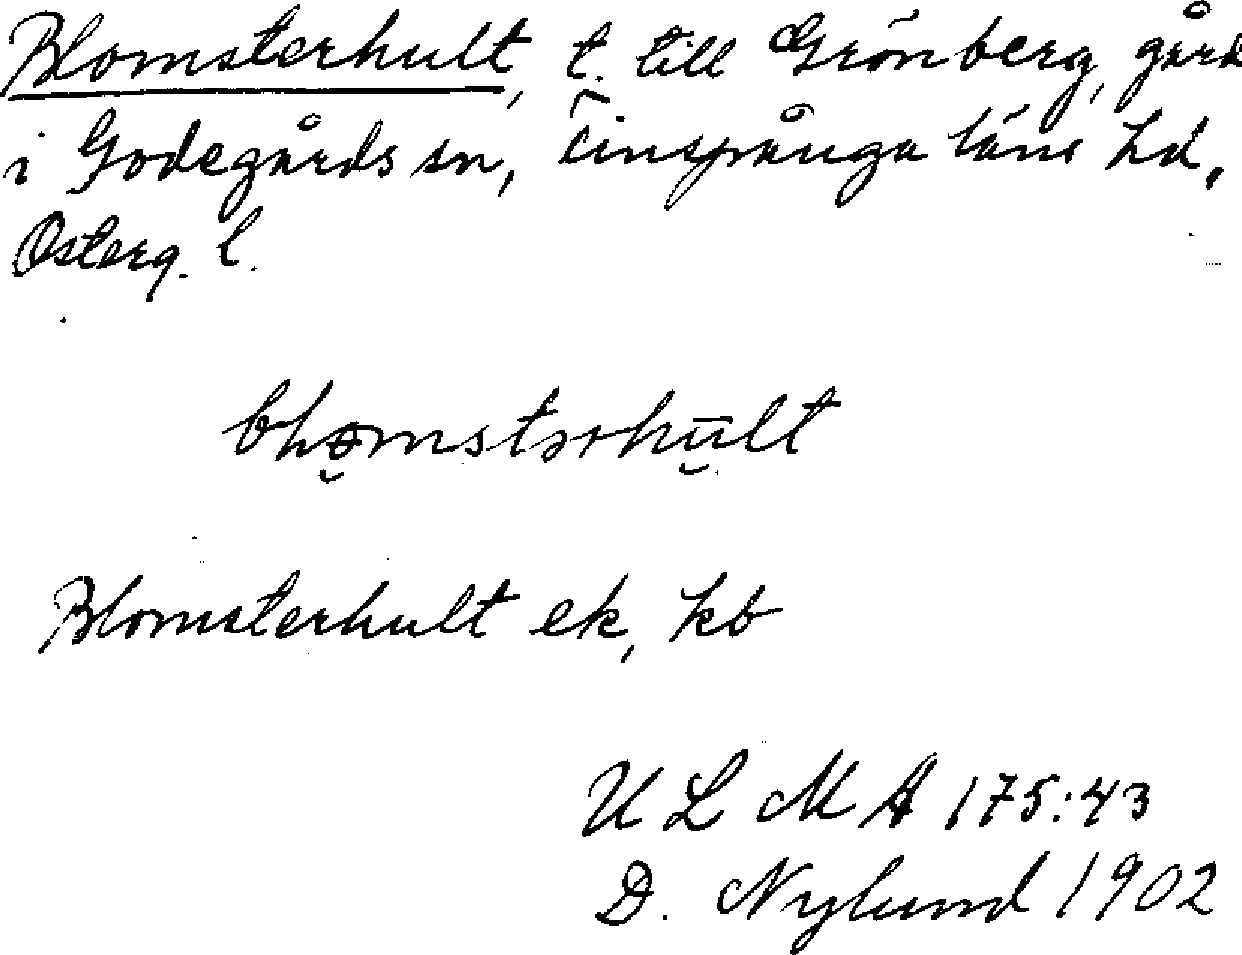 Blomsterhult, t. till Grönberg, gård
i Godegårds sn, Finspånga läns hd,
Österg. l.
Blomsterhult ek, kb
ULMA 175:43
D. Nylund 1902